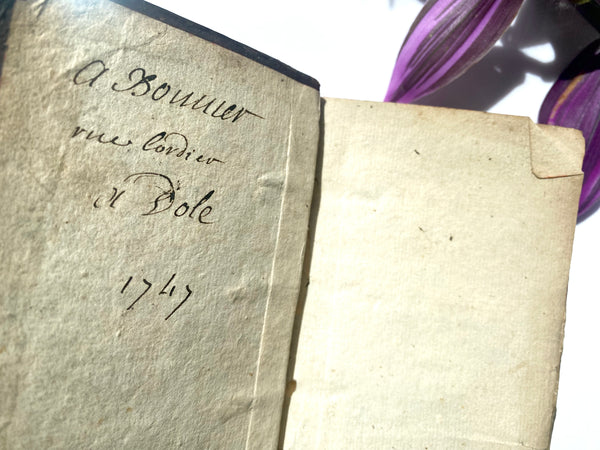 A Bonnier
rue Cordier
A Dole
1747